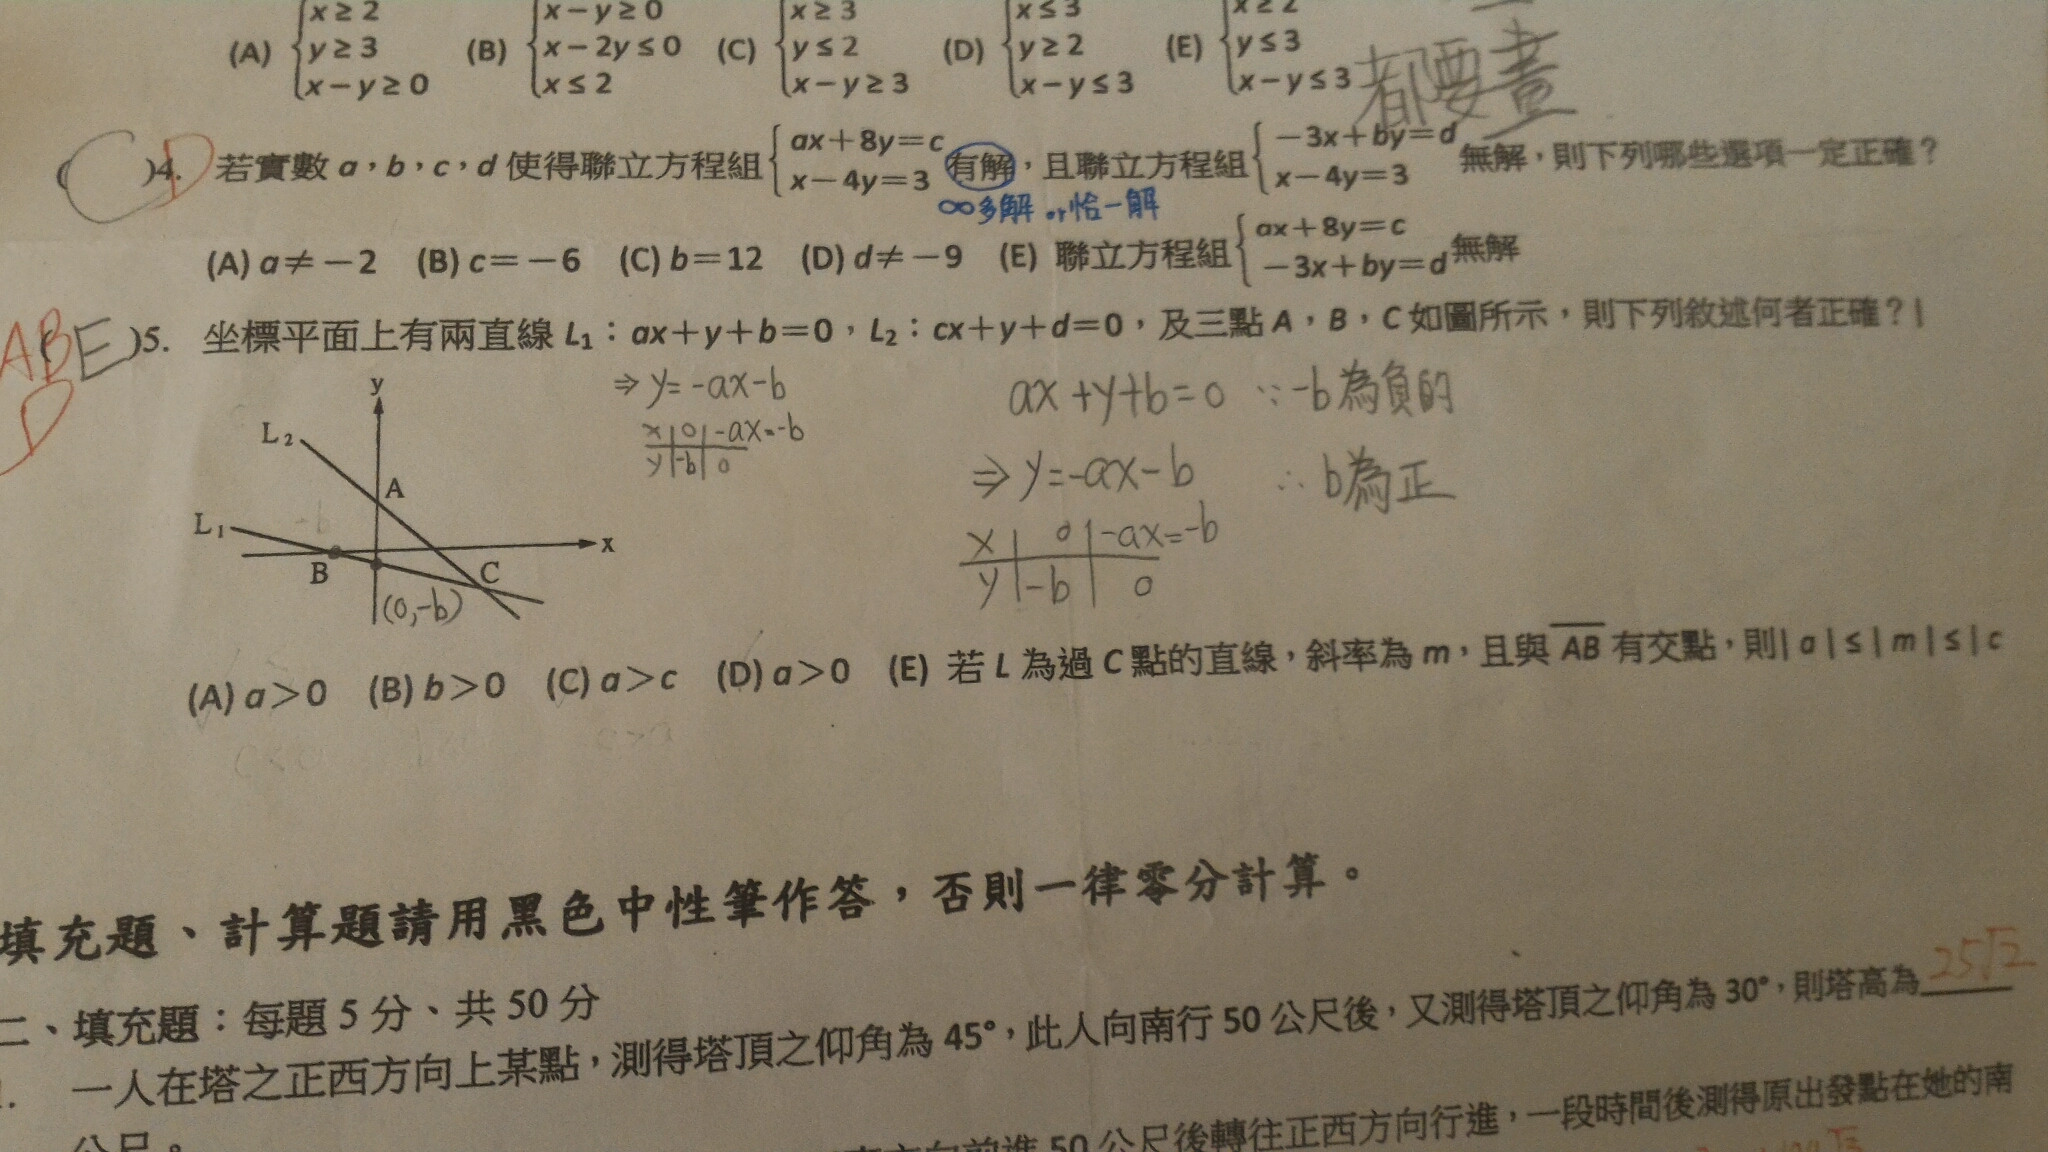 (A) { x≥2 y≥3 x−y≥0 (B) { x−y≥0 x−2y≤0 x≤2 (C) { x≥3 y≤2 x−y≥3 (D) { x≤3 y≥2 x−y≤3 (E) { x≥2 y≤3 x−y≤3
都要畫
( C )4. D 若實數 a，b，c，d 使得聯立方程組 { ax+8y=c x−4y=3 有解，且聯立方程組 { −3x+by=d x−4y=3 無解，則下列哪些選項一定正確？
∞多解 or 恰一解
(A) a≠−2 (B) c=−6 (C) b=12 (D) d≠−9 (E) 聯立方程組 { ax+8y=c −3x+by=d 無解
ABD
( E )5. 坐標平面上有兩直線 L₁：ax+y+b=0，L₂：cx+y+d=0，及三點 A，B，C 如圖所示，則下列敘述何者正確？
⇒ y=-ax-b
x | 0 | -ax=-b
y | -b | 0
ax+y+b=0 ∵ -b為負的
⇒ y=-ax-b ∴ b為正
x | 0 | -ax=-b
y | -b | 0
y
L₂
A
L₁
-b
x
B
C
(0,-b)
(A) a＞0 (B) b＞0 (C) a＞c (D) a＞0 (E) 若 L 為過 C 點的直線，斜率為 m，且與 AB 有交點，則|a|≤|m|≤|c
填充題、計算題請用黑色中性筆作答，否則一律零分計算。
二、填充題：每題 5 分、共 50 分
一人在塔之正西方向上某點，測得塔頂之仰角為 45°，此人向南行 50 公尺後，又測得塔頂之仰角為 30°，則塔高為 25√2
公尺。
前進 50 公尺後轉往正西方向行進，一段時間後測得原出發點在她的南